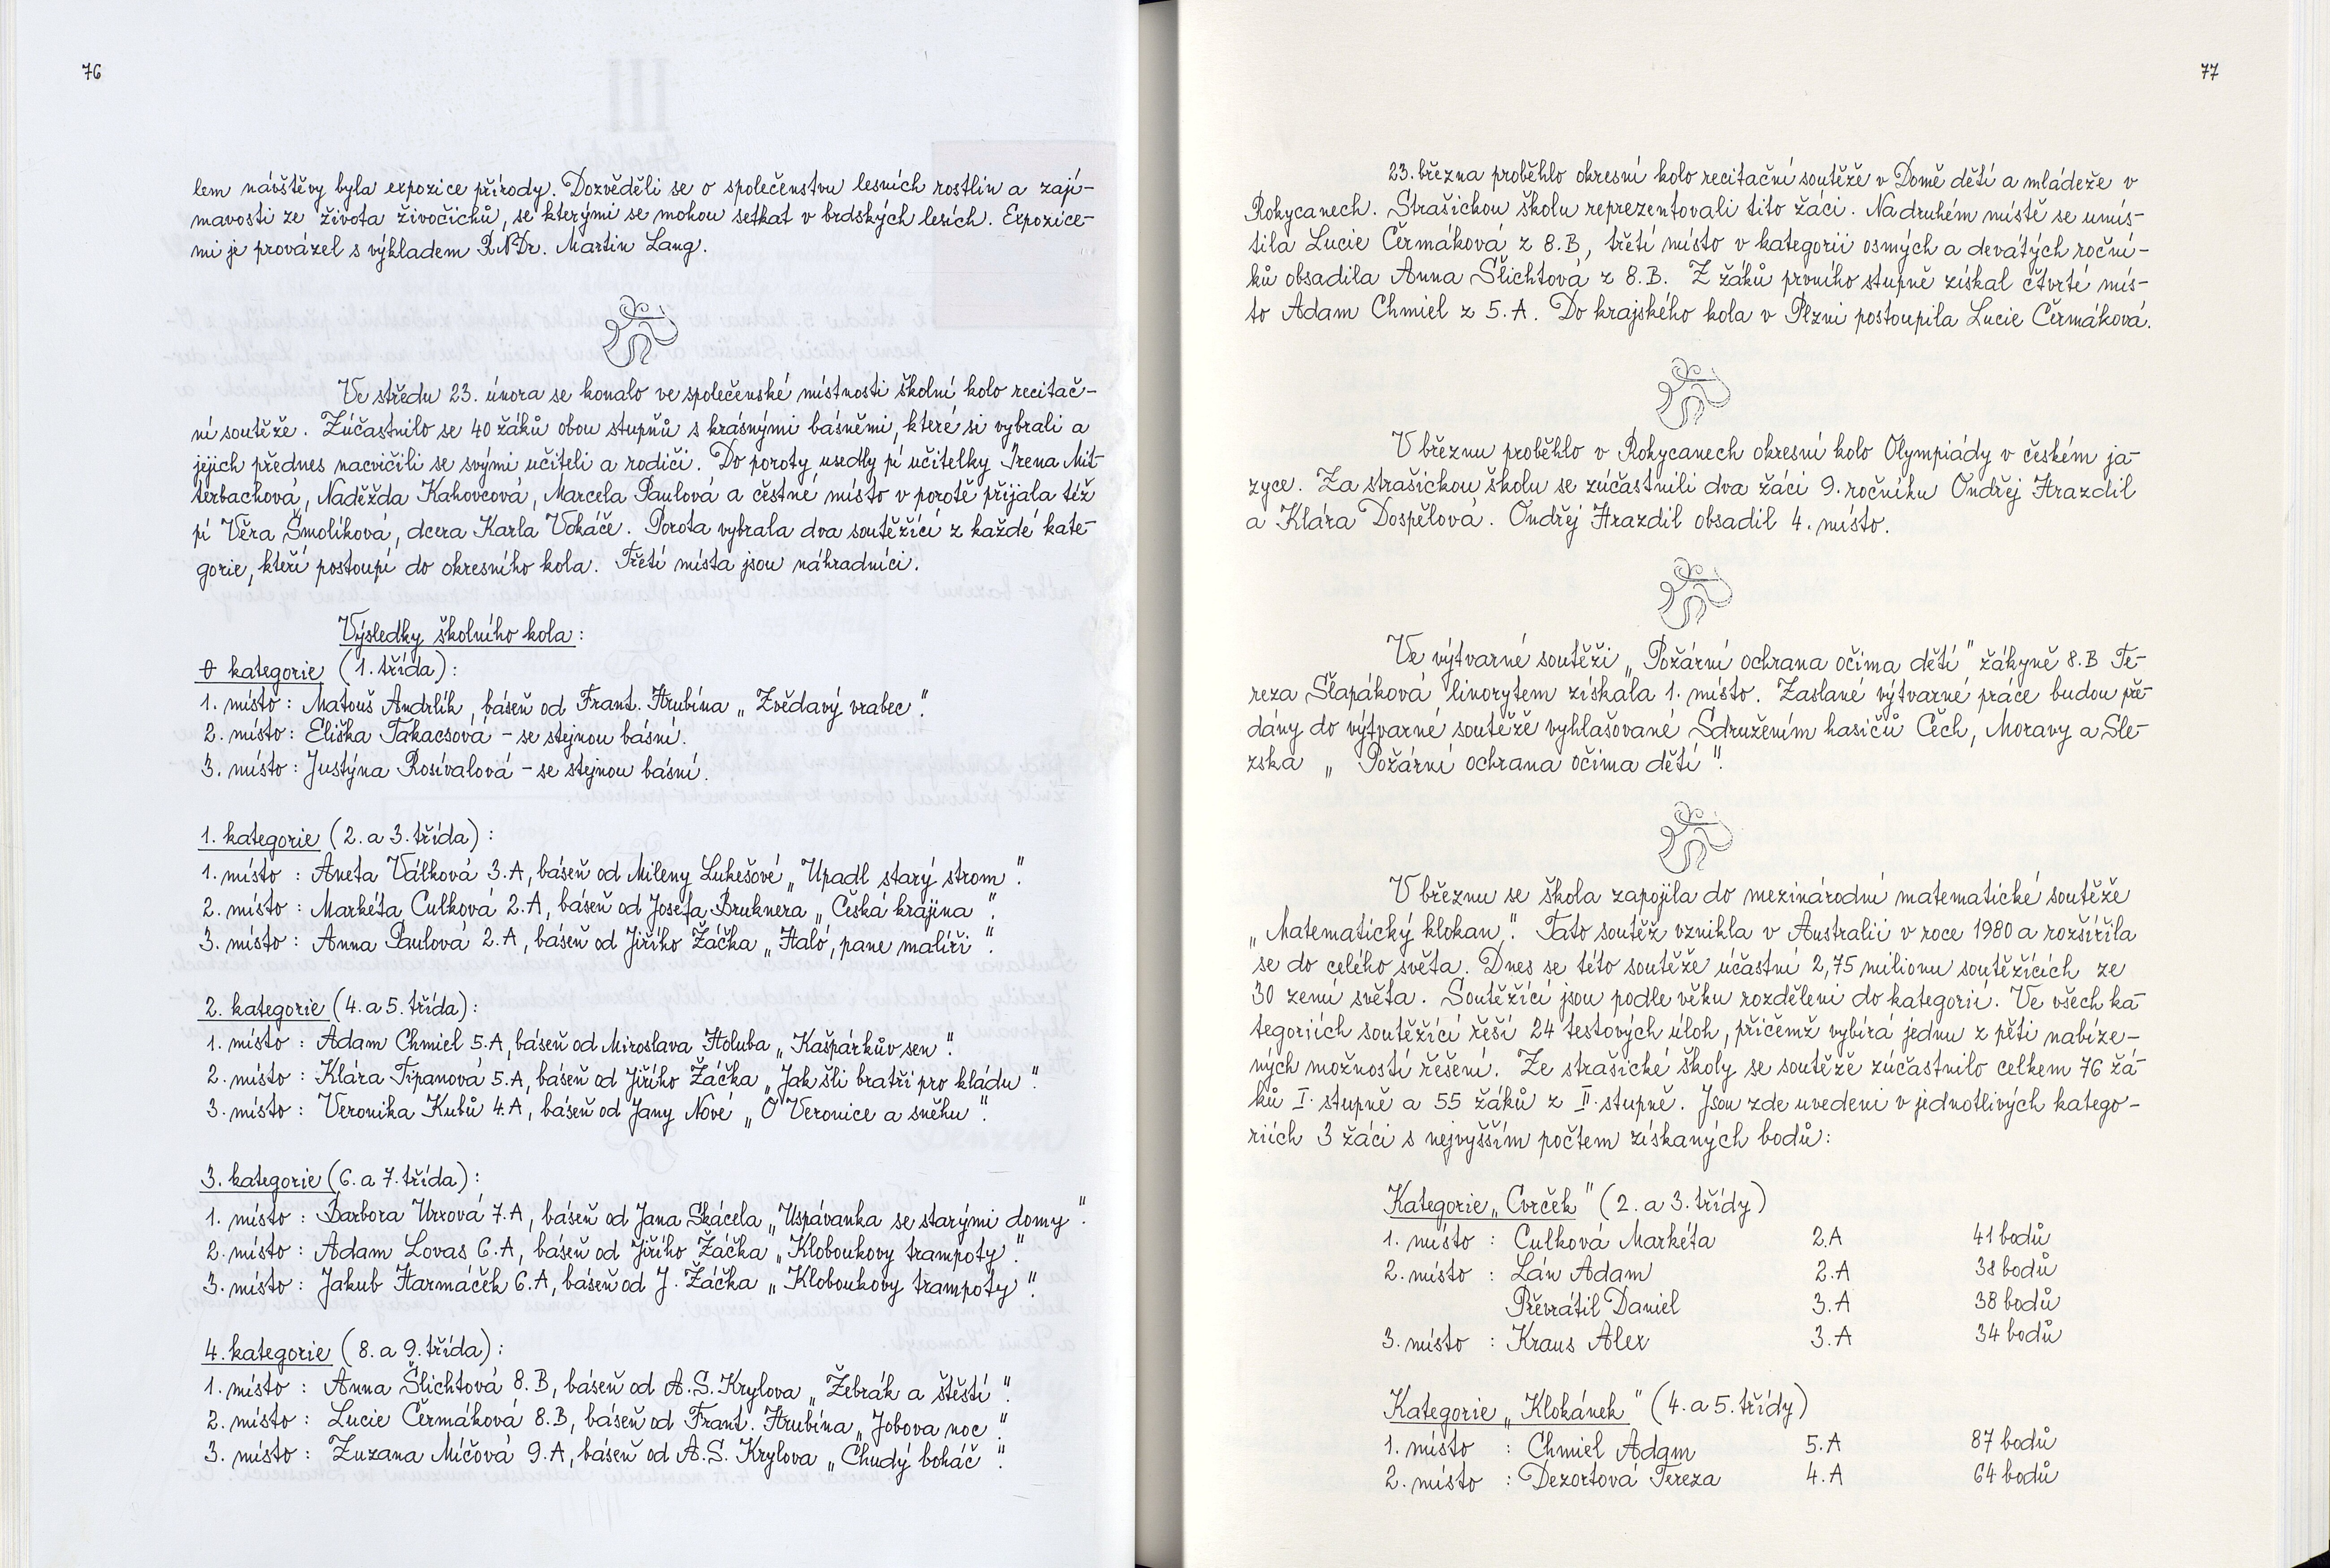 76
lem návštěvy byla expozice přírody. Dozvěděli se o společenstvu lesních rostlin a zají-
mavosti ze života živočichů, se kterými se mohou setkat v brdských lesích. Expozice-
mi je provázel s výkladem RNDr. Martin Lang.
Ve středu 23. února se konalo ve společenské místnosti školní kolo recitač-
ní soutěže. Zúčastnilo se 40 žáků obou stupňů s krásnými básněmi, které si vybrali a
jejich přednes nacvičili se svými učiteli a rodiči. Do poroty usedly pí učitelky Irena Mit-
terbachová, Naděžda Kahovcová, Marcela Paulová a čestné místo v porotě přijala též
pí Věra Smolíková, dcera Karla Vokáče. Porota vybrala dva soutěžící z každé kate-
gorie, kteří postoupí do okresního kola. Třetí místa jsou náhradníci.
Výsledky školního kola:
0 kategorie (1. třída):
1. místo: Matouš Andrlík, báseň od Frant. Hrubína „Zvědavý vrabec".
2. místo: Eliška Takacsová – se stejnou básní.
3. místo: Justýna Rosívalová – se stejnou básní.
1. kategorie (2. a 3. třída):
1. místo : Aneta Válková 3.A, báseň od Mileny Lukešové „Upadl starý strom".
2. místo : Markéta Culková 2.A, báseň od Josefa Bruknera „Česká krajina".
3. místo : Anna Paulová 2.A, báseň od Jiřího Žáčka „Haló, pane malíři".
2. kategorie (4. a 5. třída):
1. místo : Adam Chmiel 5.A, báseň od Miroslava Holuba „Kašpárkův sen".
2. místo : Klára Tipanová 5.A, báseň od Jiřího Žáčka „Jak šli bratři pro kládu".
3. místo : Veronika Kubů 4.A, báseň od Jany Nové „O Veronice a sněhu".
3. kategorie (6. a 7. třída):
1. místo : Barbora Urxová 7.A, báseň od Jana Skácela „Uspávanka se starými domy".
2. místo : Adam Lovas 6.A, báseň od Jiřího Žáčka „Kloboukovy trampoty".
3. místo : Jakub Harmáček 6.A, báseň od J. Žáčka „Kloboukovy trampoty".
4. kategorie (8. a 9. třída):
1. místo : Anna Šlichtová 8.B, báseň od A.S. Krylova „Žebrák a štěstí".
2. místo : Lucie Čermáková 8.B, báseň od Frant. Hrubína „Jobova noc".
3. místo : Zuzana Míčová 9.A, báseň od A.S. Krylova „Chudý boháč".
77
23. března proběhlo okresní kolo recitační soutěže v Domě dětí a mládeže v
Rokycanech. Strašickou školu reprezentovali tito žáci. Na druhém místě se umís-
tila Lucie Čermáková z 8.B, třetí místo v kategorii osmých a devátých roční-
ků obsadila Anna Šlichtová z 8.B. Z žáků prvního stupně získal čtvrté mís-
to Adam Chmiel z 5.A. Do krajského kola v Plzni postoupila Lucie Čermáková.
V březnu proběhlo v Rokycanech okresní kolo Olympiády v českém ja-
zyce. Za strašickou školu se zúčastnili dva žáci 9. ročníku Ondřej Hrazdil
a Klára Dospělová. Ondřej Hrazdil obsadil 4. místo.
Ve výtvarné soutěži „Požární ochrana očima dětí" žákyně 8.B Te-
reza Šlapáková linorytem získala 1. místo. Zaslané výtvarné práce budou pře-
dány do výtvarné soutěže vyhlašované Sdružením hasičů Čech, Moravy a Sle-
zska „Požární ochrana očima dětí".
V březnu se škola zapojila do mezinárodní matematické soutěže
„Matematický klokan". Tato soutěž vznikla v Australii v roce 1980 a rozšířila
se do celého světa. Dnes se této soutěže účastní 2,75 milionu soutěžících ze
30 zemí světa. Soutěžící jsou podle věku rozděleni do kategorií. Ve všech ka-
tegoriích soutěžící řeší 24 testových úloh, přičemž vybírá jednu z pěti nabíze-
ných možností řešení. Ze strašické školy se soutěže zúčastnilo celkem 76 žá-
ků I. stupně a 55 žáků z II. stupně. Jsou zde uvedeni v jednotlivých katego-
riích 3 žáci s nejvyšším počtem získaných bodů:
Kategorie „Cvrček" (2. a 3. třídy)
1. místo : Culková Markéta 2.A 41 bodů
2. místo : Lán Adam 2.A 38 bodů
Převrátil Daniel 3.A 38 bodů
3. místo : Kraus Alex 3.A 34 bodů
Kategorie „Klokánek" (4. a 5. třídy)
1. místo : Chmiel Adam 5.A 87 bodů
2. místo : Dezortová Tereza 4.A 64 bodů